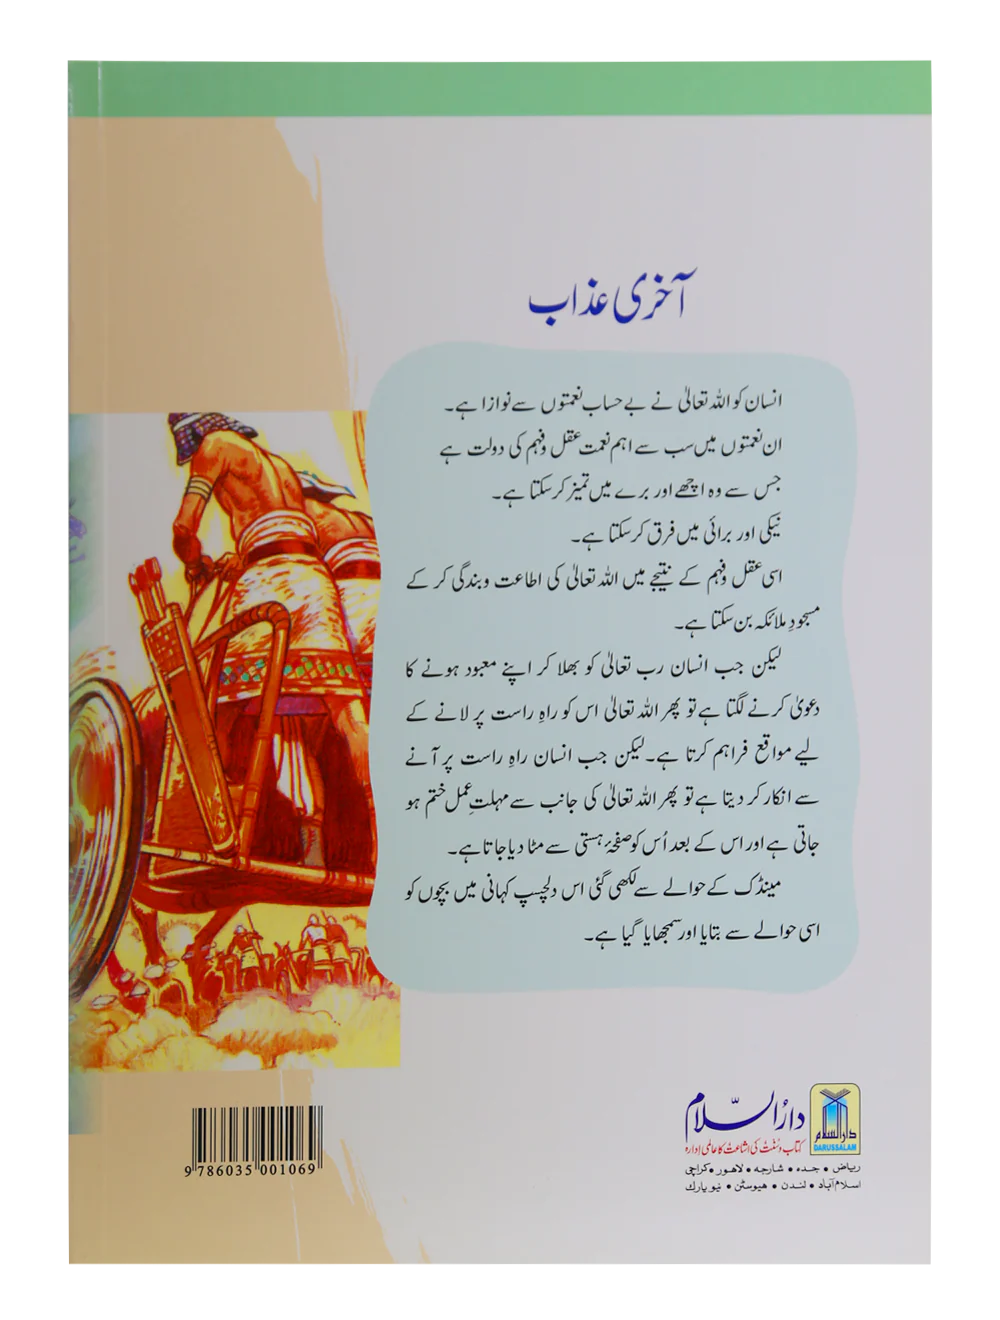 آخری عذاب
انسان کو اللہ تعالیٰ نے بے حساب نعمتوں سے نوازا ہے۔
ان نعمتوں میں سب سے اہم نعمت عقل و فہم کی دولت ہے
جس سے وہ اچھے اور برے میں تمیز کر سکتا ہے۔
نیکی اور برائی میں فرق کر سکتا ہے۔
اسی عقل و فہم کے نتیجے میں اللہ تعالیٰ کی اطاعت و بندگی کر کے
مسجودِ ملائکہ بن سکتا ہے۔
لیکن جب انسان رب تعالیٰ کو بھلا کر اپنے معبود ہونے کا
دعویٰ کرنے لگتا ہے تو پھر اللہ تعالیٰ اس کو راہِ راست پر لانے کے
لیے مواقع فراہم کرتا ہے۔ لیکن جب انسان راہِ راست پر آنے
سے انکار کر دیتا ہے تو پھر اللہ تعالیٰ کی جانب سے مہلتِ عمل ختم ہو
جاتی ہے اور اس کے بعد اُس کو صفحۂ ہستی سے مٹا دیا جاتا ہے۔
مینڈک کے حوالے سے لکھی گئی اس دلچسپ کہانی میں بچوں کو
اسی حوالے سے بتایا اور سمجھایا گیا ہے۔
دارالسلام
دارُالسّلام
DARUSSALAM
کتاب و سنت کی اشاعت کا عالمی ادارہ
ریاض • جدہ • شارجہ • لاہور • کراچی
اسلام آباد • لندن • ہیوسٹن • نیو یارک
9 786035 001069